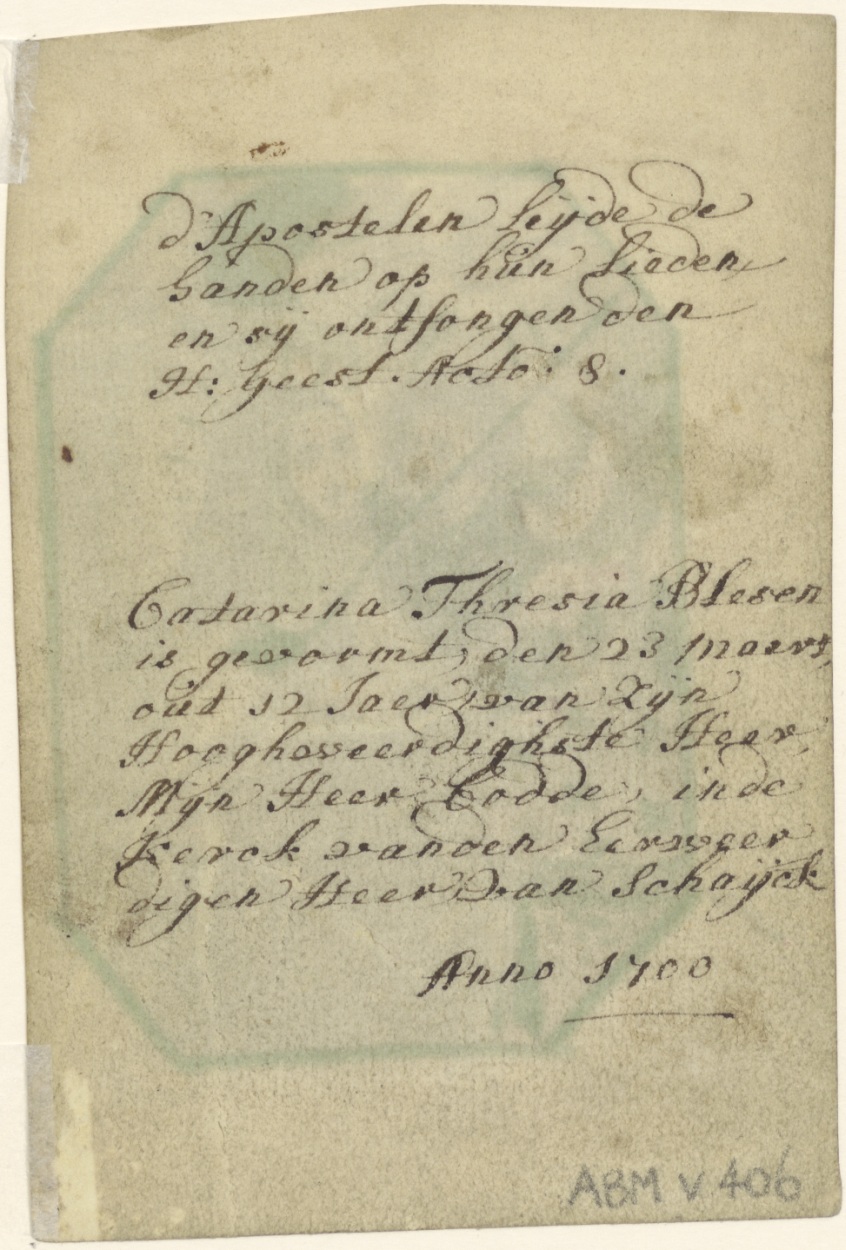 d'Apostelen leijde de
handen op hun lieden,
en sij ontfongen den
H: geest. Acto: 8.
Catarina Thresia Blesen
is gevormt, den 23 maert,
out 12 Jaer van Zijn
Hoogheweerdighste Heer,
Mijn Heer Codde, inde
Kerck vanden Eerweer
digen Heer van Schaijck
Anno 1700
ABM V 406